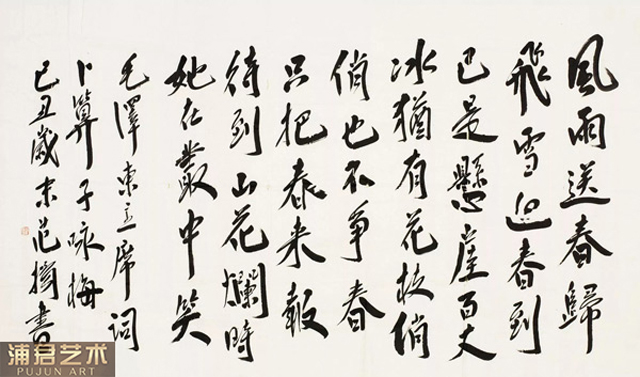 風雨送春歸
飛雪迎春到
已是懸崖百丈
冰猶有花枝俏
俏也不争春
只把春来報
待到山花爛時
她在叢中笑
毛澤東主席詞
卜算子咏梅
己丑歲末范書
浦君艺术
PUJUN ART